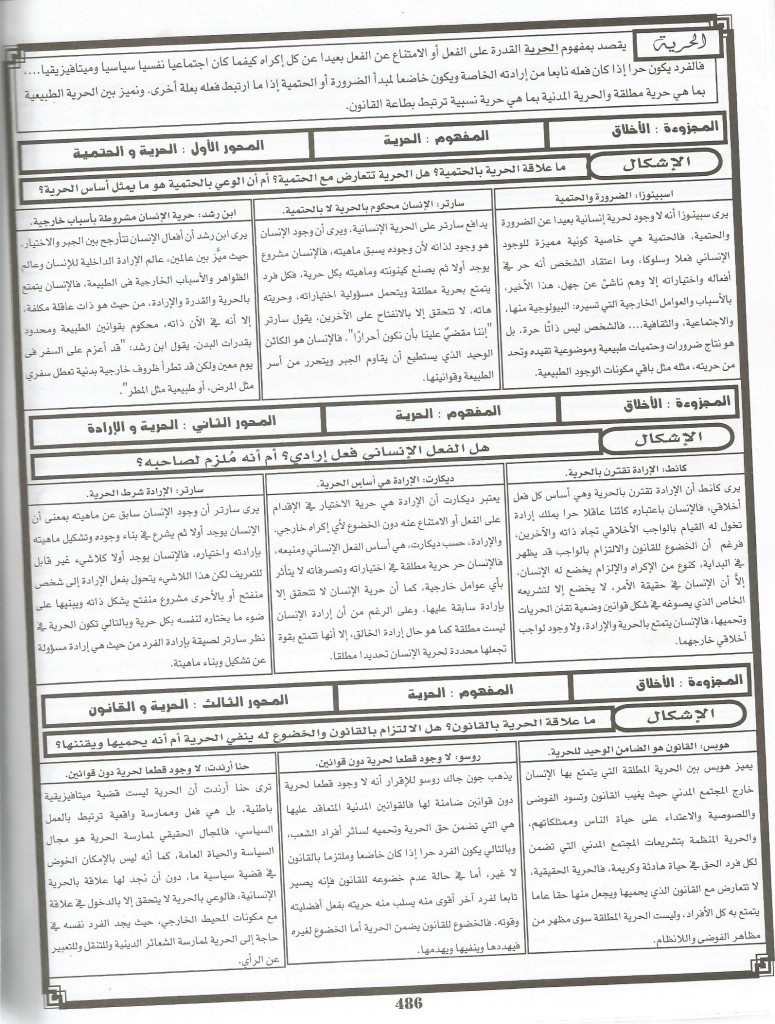 الحرية
يقصد بمفهوم الحرية القدرة على الفعل أو الامتناع عن الفعل بعيدا عن كل إكراه كيفما كان اجتماعيا نفسيا سياسيا وميتافيزيقيا....
فالفرد يكون حرا إذا كان فعله نابعا من إرادته الخاصة ويكون خاضعا لمبدأ الضرورة أو الحتمية إذا ما ارتبط فعله بعلة أخرى. ونميز بين الحرية الطبيعية
بما هي حرية مطلقة والحرية المدنية بما هي حرية نسبية ترتبط بطاعة القانون.
المجزوءة : الأخلاق
المفهوم : الحرية
المحور الأول : الحرية و الحتمية
الإشكال
ما علاقة الحرية بالحتمية؟ هل الحرية تتعارض مع الحتمية؟ أم أن الوعي بالحتمية هو ما يمثل أساس الحرية؟
اسبينوزا: الضرورة والحتمية
يرى سبينوزا أنه لا وجود لحرية إنسانية بعيدا عن الضرورة
والحتمية. فالحتمية هي خاصية كونية مميزة للوجود
الإنساني فعلا وسلوكا، وما اعتقاد الشخص أنه حر في
أفعاله واختياراته إلا وهم ناشئ عن جهل، هذا الأخير،
بالأسباب والعوامل الخارجية التي تسيره: البيولوجية منها،
والاجتماعية، والثقافية.... فالشخص ليس ذاتًا حرة، بل
هو نتاج ضرورات وحتميات طبيعية وموضوعية تقيده وتحد
من حريته، مثله مثل باقي مكونات الوجود الطبيعية.
سارتر: الإنسان محكوم بالحرية لا بالحتمية.
يدافع سارتر على الحرية الإنسانية، ويرى أن وجود الإنسان
هو وجود لذاته لأن وجوده يسبق ماهيته، فالإنسان مشروع
يوجد أولا ثم يصنع كينونته وماهيته بكل حرية، فكل فرد
يتمتع بحرية مطلقة ويتحمل مسؤولية اختياراته، وحريته
هاته، لا تتحقق إلا بالانفتاح على الآخرين، يقول سارتر
"إننا مقضيٌّ علينا بأن نكون أحرارًا"، فالإنسان هو الكائن
الوحيد الذي يستطيع أن يقاوم الجبر ويتحرر من أسر
الطبيعة وقوانينها.
ابن رشد: حرية الإنسان مشروطة بأسباب خارجية.
يرى ابن رشد أن أفعال الإنسان تتأرجح بين الجبر والاختيار،
حيث ميّز بين عالمين، عالم الإرادة الداخلية للإنسان وعالم
الظواهر والأسباب الخارجية في الطبيعة، فالإنسان يتمتع
بالحرية والقدرة والإرادة، من حيث هو ذات عاقلة مكلفة،
إلا أنه في الآن ذاته، محكوم بقوانين الطبيعة ومحدود
بقدرات البدن. يقول ابن رشد: "قد أعزم على السفر في
يوم معين ولكن قد تطرأ ظروف خارجية بدنية تعطل سفري
مثل المرض، أو طبيعية مثل المطر".
المجزوءة : الأخلاق
المفهوم : الحرية
المحور الثاني : الحرية و الإرادة
الإشكال
هل الفعل الإنساني فعل إرادي؟ أم أنه مُلزم لصاحبه؟
كانط: الإرادة تقترن بالحرية.
يرى كانط أن الإرادة تقترن بالحرية وهي أساس كل فعل
أخلاقي، فالإنسان باعتباره كائنا عاقلا حرا يملك إرادة
تخول له القيام بالواجب الأخلاقي تجاه ذاته والآخرين،
فرغم أن الخضوع للقانون والالتزام بالواجب قد يظهر
في البداية، كنوع من الإكراه والإلزام يخضع له الإنسان،
إلاَّ أن الإنسان في حقيقة الأمر، لا يخضع إلا لتشريعه
الخاص الذي يصوغه في شكل قوانين وضعية تقنن الحريات
وتحميها، فالإنسان يتمتع بالحرية والإرادة، ولا وجود لواجب
أخلاقي خارجهما.
ديكارت: الإرادة هي أساس الحرية.
يعتبر ديكارت أن الإرادة هي حرية الاختيار في الإقدام
على الفعل أو الامتناع عنه دون الخضوع لأي إكراه خارجي،
والإرادة، حسب ديكارت، هي أساس الفعل الإنساني ومنبعه،
فالإنسان حر حرية مطلقة في اختياراته وتصرفاته لا يتأثر
بأي عوامل خارجية، كما أن حرية الإنسان لا تتحقق إلا
بإرادة سابقة عليها، وعلى الرغم من أن إرادة الإنسان
ليست مطلقة كما هو حال إرادة الخالق، إلا أنها تتمتع بقوة
تجعلها محددة لحرية الإنسان تحديدا مطلقا.
سارتر: الإرادة شرط الحرية.
يرى سارتر أن وجود الإنسان سابق عن ماهيته بمعنى أن
الإنسان يوجد أولا ثم يشرع في بناء وجوده وتشكيل ماهيته
بإرادته واختياره، فالإنسان يوجد أولا كلاشيء غير قابل
للتعريف لكن هذا اللاشيء يتحول بفعل الإرادة إلى شخص
منفتح أو بالأحرى مشروع منفتح يشكل ذاته ويبنيها على
ضوء ما يختاره لنفسه بكل حرية وبالتالي تكون الحرية في
نظر سارتر لصيقة بإرادة الفرد من حيث هي إرادة مسؤولة
عن تشكيل وبناء ماهيتة.
المجزوءة : الأخلاق
المفهوم : الحرية
المحور الثالث : الحرية و القانون
الإشكال
ما علاقة الحرية بالقانون؟ هل الالتزام بالقانون والخضوع له ينفي الحرية أم أنه يحميها ويقننها؟
هوبس: القانون هو الضامن الوحيد للحرية.
يميز هوبس بين الحرية المطلقة التي يتمتع بها الإنسان
خارج المجتمع المدني حيث يغيب القانون وتسود الفوضى
واللصوصية والاعتداء على حياة الناس وممتلكاتهم،
والحرية المنظمة بتشريعات المجتمع المدني التي تضمن
لكل فرد الحق في حياة هادئة وكريمة، فالحرية الحقيقية،
لا تتعارض مع القانون الذي يحميها ويجعل منها حقا عاما
يتمتع به كل الأفراد، وليست الحرية المطلقة سوى مظهر من
مظاهر الفوضى واللانظام.
روسو: لا وجود قطعا لحرية دون قوانين.
يذهب جون جاك روسو للإقرار أنه لا وجود قطعا لحرية
دون قوانين ضامنة لها فالقوانين المدنية المتعاقد عليها
هي التي تضمن حق الحرية وتحميه لسائر أفراد الشعب،
وبالتالي يكون الفرد حرا إذا كان خاضعا وملتزما بالقانون
لا غير، أما في حالة عدم خضوعه للقانون فإنه يصير
تابعا لفرد آخر أقوى منه يسلب منه حريته بفعل أفضليته
وقوته. فالخضوع للقانون يضمن الحرية أما الخضوع لغيره
فيهددها وينفيها ويهدمها.
حنا أرندت: لا وجود قطعا لحرية دون قوانين.
ترى حنا أرندت أن الحرية ليست قضية ميتافيزيقية
باطنية، بل هي فعل وممارسة واقعية ترتبط بالعمل
السياسي، فالمجال الحقيقي لممارسة الحرية هو مجال
السياسة والحياة العامة، كما أنه ليس بالإمكان الخوض
في قضية سياسية ما، دون أن نجد لها علاقة بالحرية
الإنسانية، فالوعي بالحرية لا يتحقق إلا بالدخول في علاقة
مع مكونات المحيط الخارجي، حيث يجد الفرد نفسه في
حاجة إلى الحرية لممارسة الشعائر الدينية وللتنقل وللتعبير
عن الرأي.
486